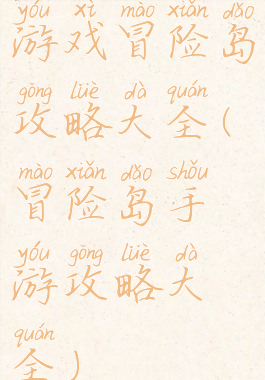 yóu xì mào xiǎn dǎo
游戏冒险岛
gōng lüè dà quán
攻略大全(
mào xiǎn dǎo shǒu
冒险岛手
yóu gōng lüè dà
游攻略大
quán
全)